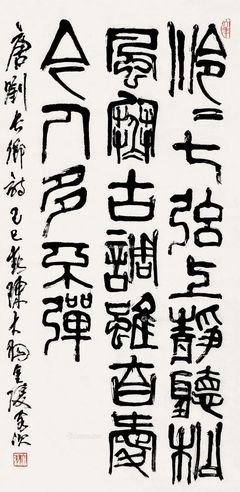 泠〻七弦上靜聽松
風寒古調雖自愛
今人多不彈
唐劉長卿詩乙巳秋陳大羽金陵客次